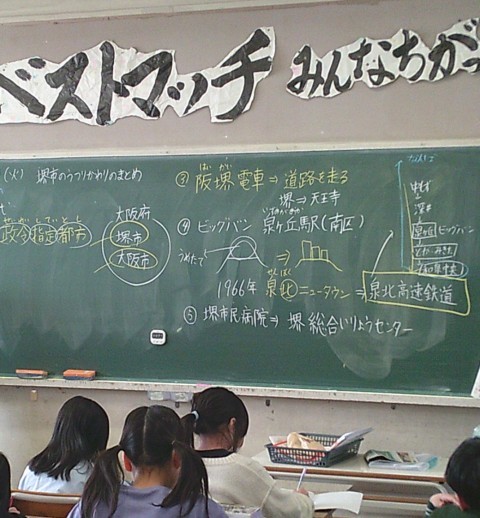 ベストマッチ
みんなちが
(火) 堺市のうつりかわりのまとめ
せいれいしていとし
政令指定都市
大阪府
堺市
大阪市
③ 阪堺電車⇒道路を走る
はん かい
堺→天王寺
④ ビッグバン 泉ヶ丘駅(南区)
うめたて
⇒
1966年 泉北ニュータウン⇒泉北高速鉄道
せんぼく
⑤ 堺市民病院⇒堺総合いりょうセンター
なんば
中もず
深井
ビッグバン